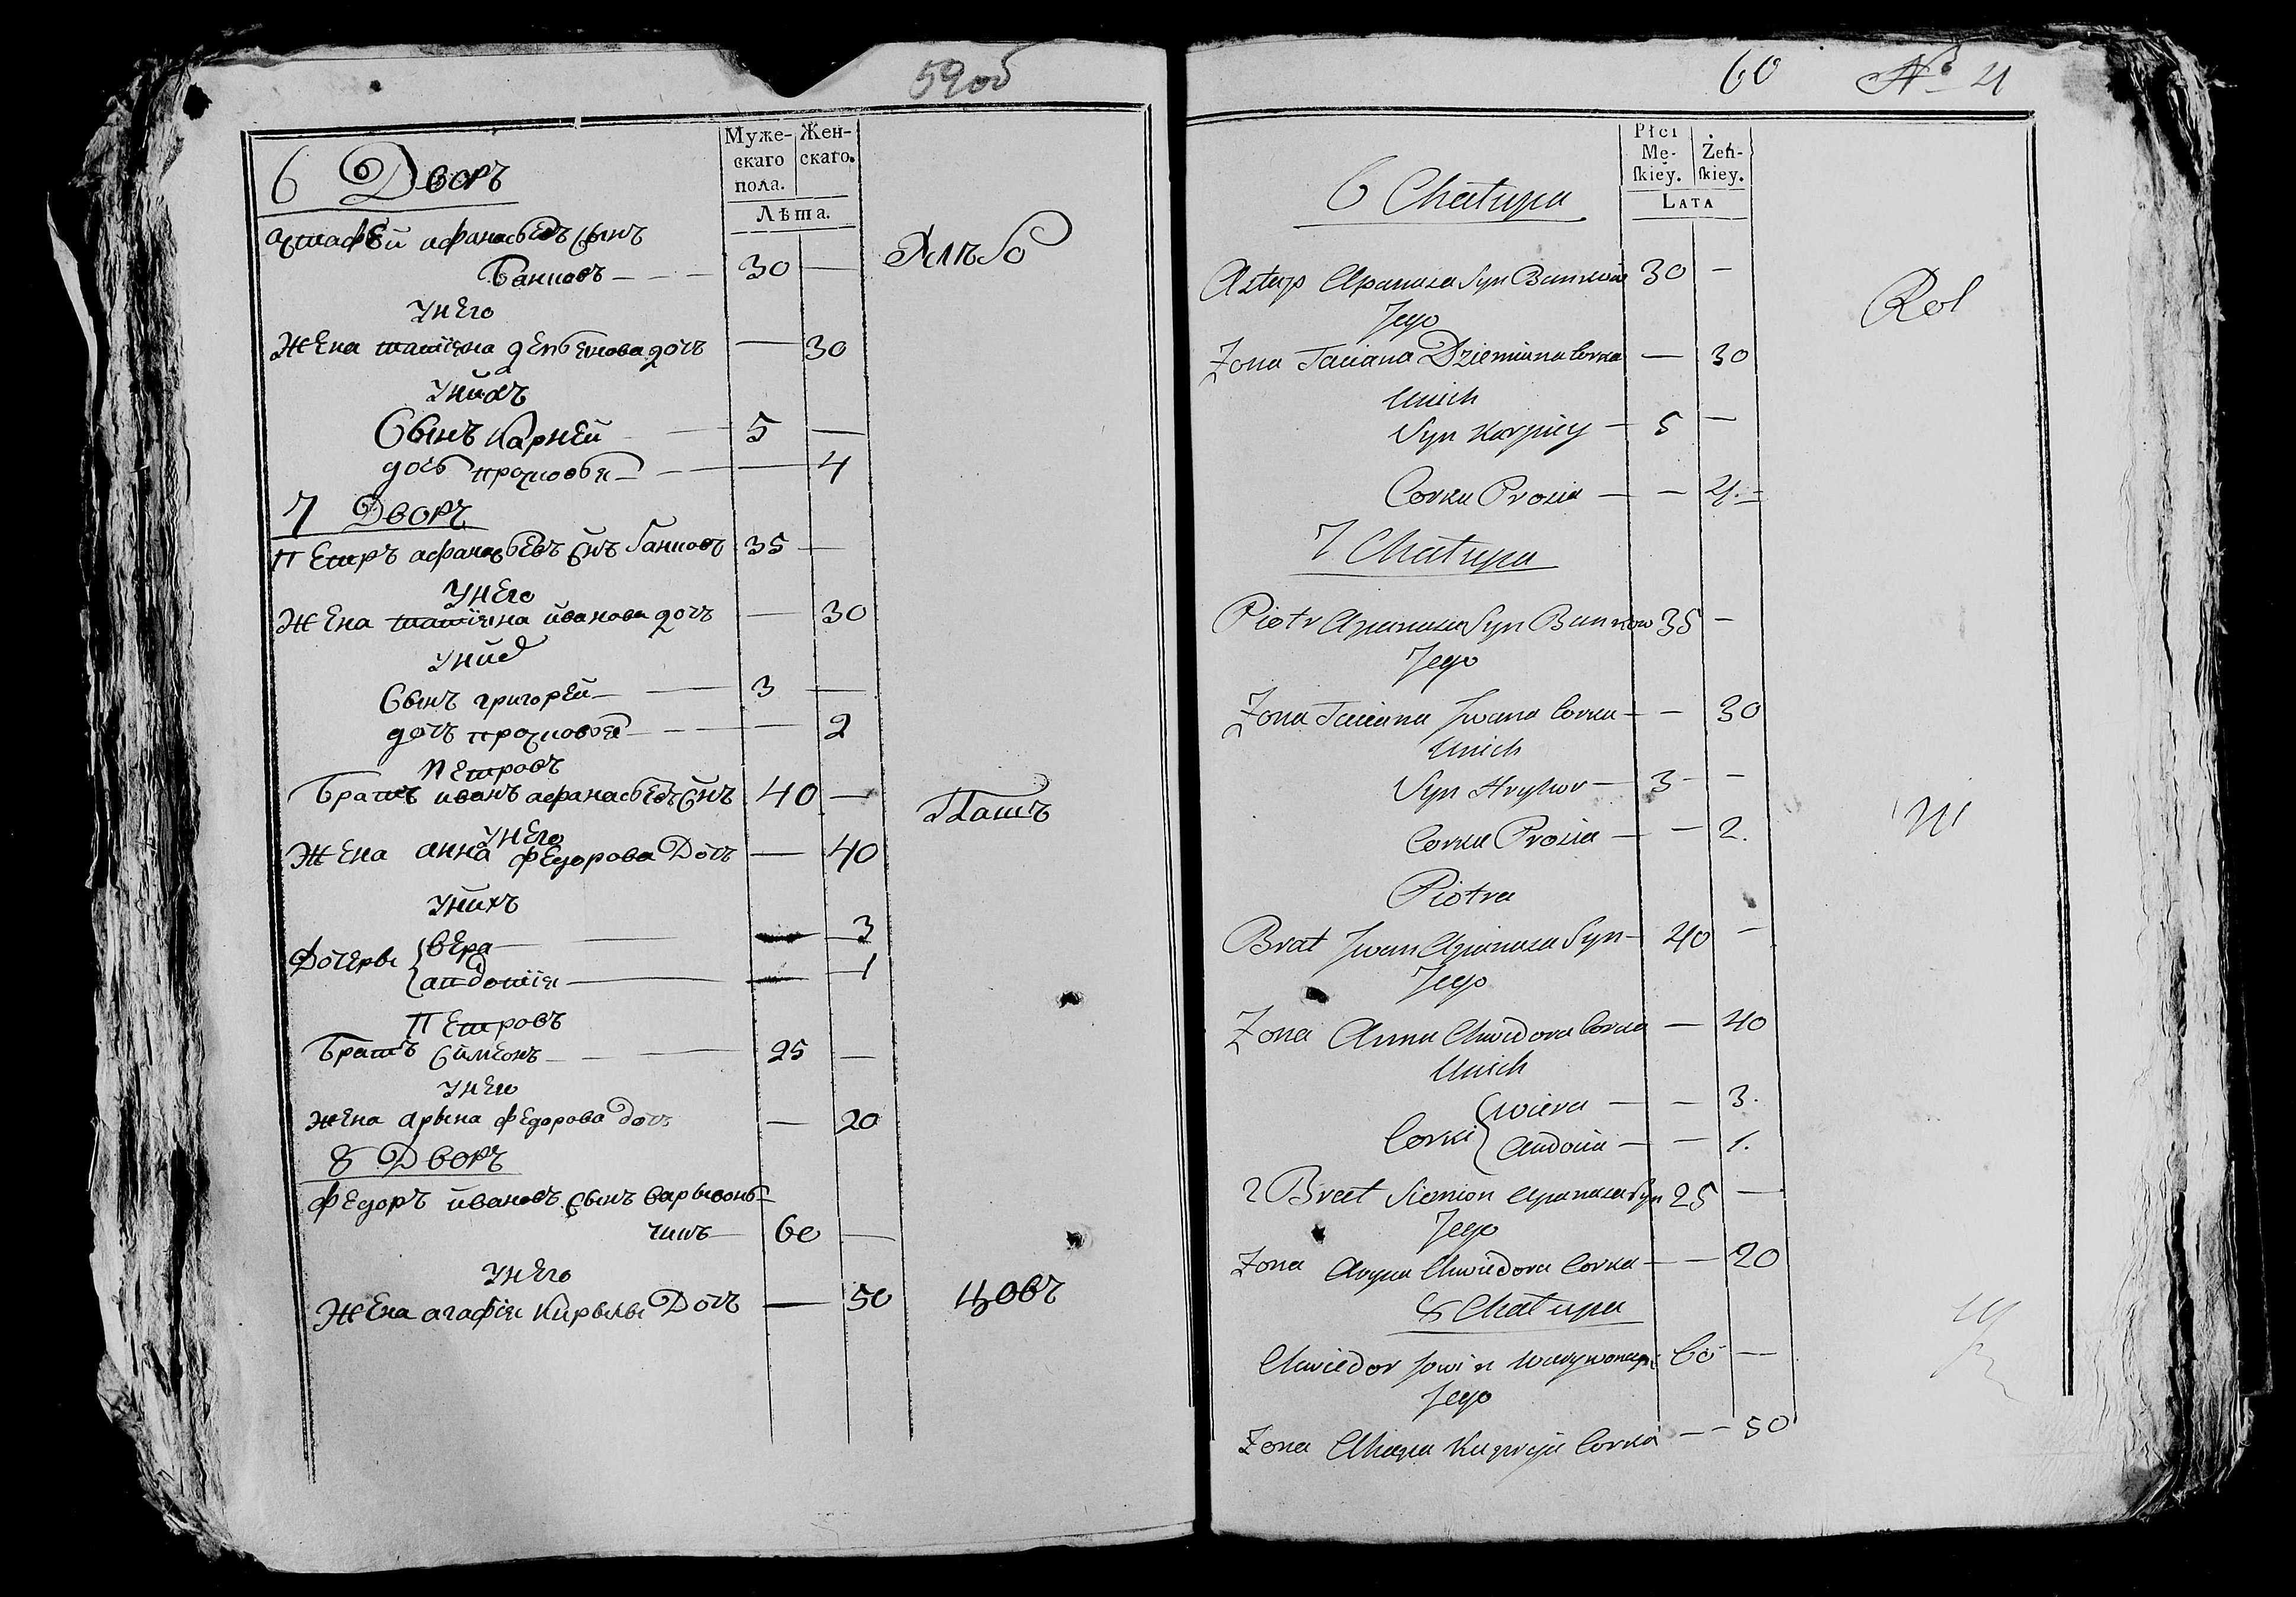 59об
Муже-
скаго
пола.
Жен-
скаго.
Лѣта.
6 Дворъ
афанасьевъ сынъ
Банковъ — 30 —
Хлѣбо
У него
Жена татіяна дочъ — 30
У нихъ
Сынъ Карней — 5 —
дочь просковья — 4
7 Дворъ
Петръ афанасьевъ снъ банковъ 35 —
У него
Жена татіяна иванова дочъ — 30
У них
Сынъ григорей — 3 —
дочъ просковья — 2
Петровъ
Братъ иванъ афанасьевъ снъ 40 —
Пашъ
У него
Жена анна федорова Дочъ — 40
У нихъ
Дочеры { вера — 3
авдотія — 1
Петровъ
Братъ Симіонъ — 25 —
У него
жена арына федорова дочъ — 20
8 Дворъ
федоръ ивановъ сынъ варывонь-
чикъ — 60 —
У него
Жена агафія Кирылы Дочъ — 50
цовъ
60 No 4
Płci
Mę-
skiey.
Żeń-
skiey.
Lata
6 Chałupa
Astap Apanasa Syn Bankow 30 —
Rol
Jego
Zona Taciana Dziemiana Corka — 30
Unich
Syn Karniey — 5 —
Corka Prosia — — 4. —
7 Chałupa
Piotr Apanasa Syn Bankow 35 —
Jego
Zona Taciana Jwana Corka — — 30
Unich
Syn Hryhor — 3 — —
Corka Prosia — — 2.
Piotra
Brat Jwan Apanasa Syn — 40 —
Jego
Zona Anna Chwiedora Corka — 40
Unich
Corki { Wiera — — 3.
Audocia — — 1.
2 Brat Siemion Apanasa Syn 25 —
Jego
Zona Aryna Chwiedora Corka — — 20
8 Chałupa
Chwiedor 60 —
Jego
Zona Ahapa Corka — — 50